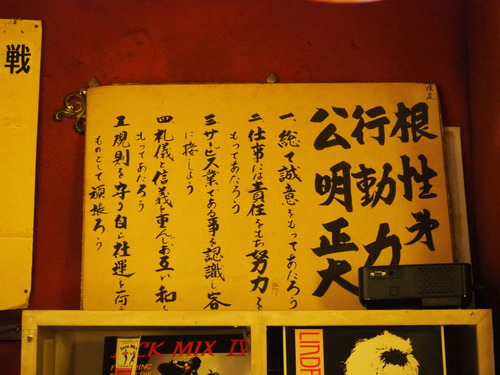 戦
根性才
行動力
公明正大
一、総て誠意をもってあたろう
二、仕事には責任をもち努力を
もってあたろう
三、サービス業である事を認識し客
に接しよう
四、礼儀と信義を重んじお互い和を
もってあたろう
五、規則を守り自ら社運を荷う
ものとして頑張ろう
CK MIX IV
LINDA